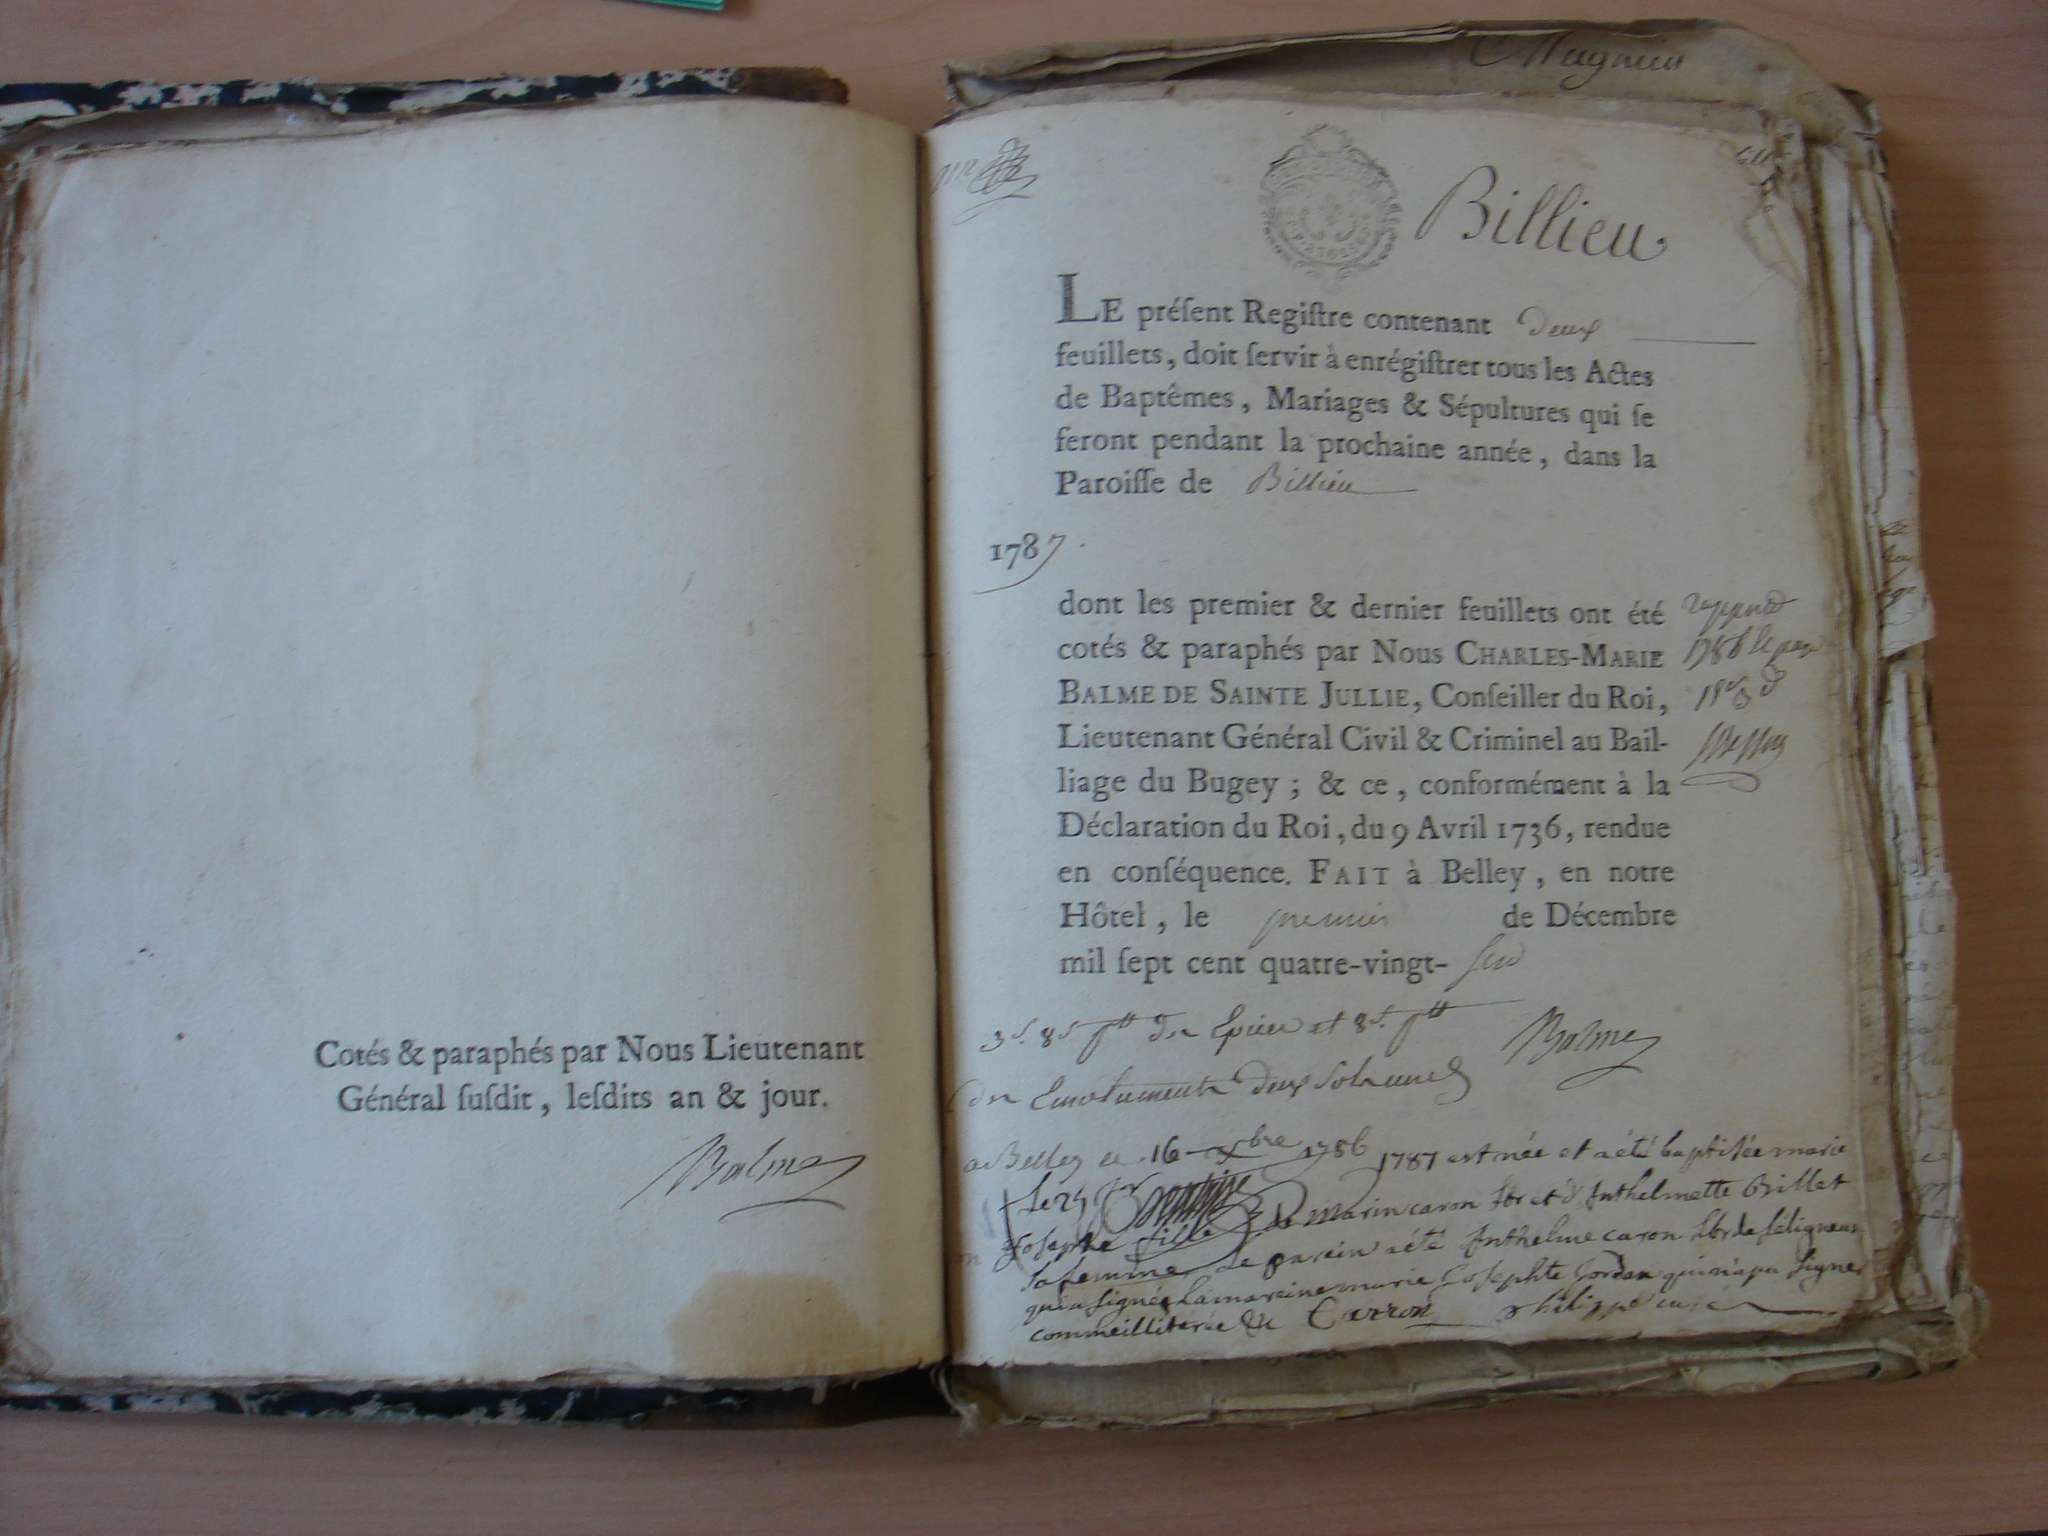 Cotés & paraphés par Nous Lieutenant
Général ſuſdit, leſdits an & jour.
Balme
Billieu
LE préſent Regiſtre contenant deux
feuillets, doit ſervir à enrégiſtrer tous les Actes
de Baptêmes, Mariages & Sépultures qui ſe
feront pendant la prochaine année, dans la
Paroiſſe de Billieu
1787.
dont les premier & dernier feuillets ont été
cotés & paraphés par Nous CHARLES-MARIE
BALME DE SAINTE JULLIE, Conſeiller du Roi,
Lieutenant Général Civil & Criminel au Bail-
liage du Bugey ; & ce, conformément à la
Déclaration du Roi, du 9 Avril 1736, rendue
en conſéquence. FAIT à Belley, en notre
Hôtel, le premier de Décembre
mil ſept cent quatre-vingt-
Balme
a Belley le 16 xbre 1786
le 25 1787 est née et a été baptisée marie
Josephe fille de marin caron et d'Anthelmette Billet
sa femme le parein a été Anthelme caron de seligneux
qui a signé la mareine marie Josephte Gordan qui n'a pu signer
comme illiterée Carron philippe curé